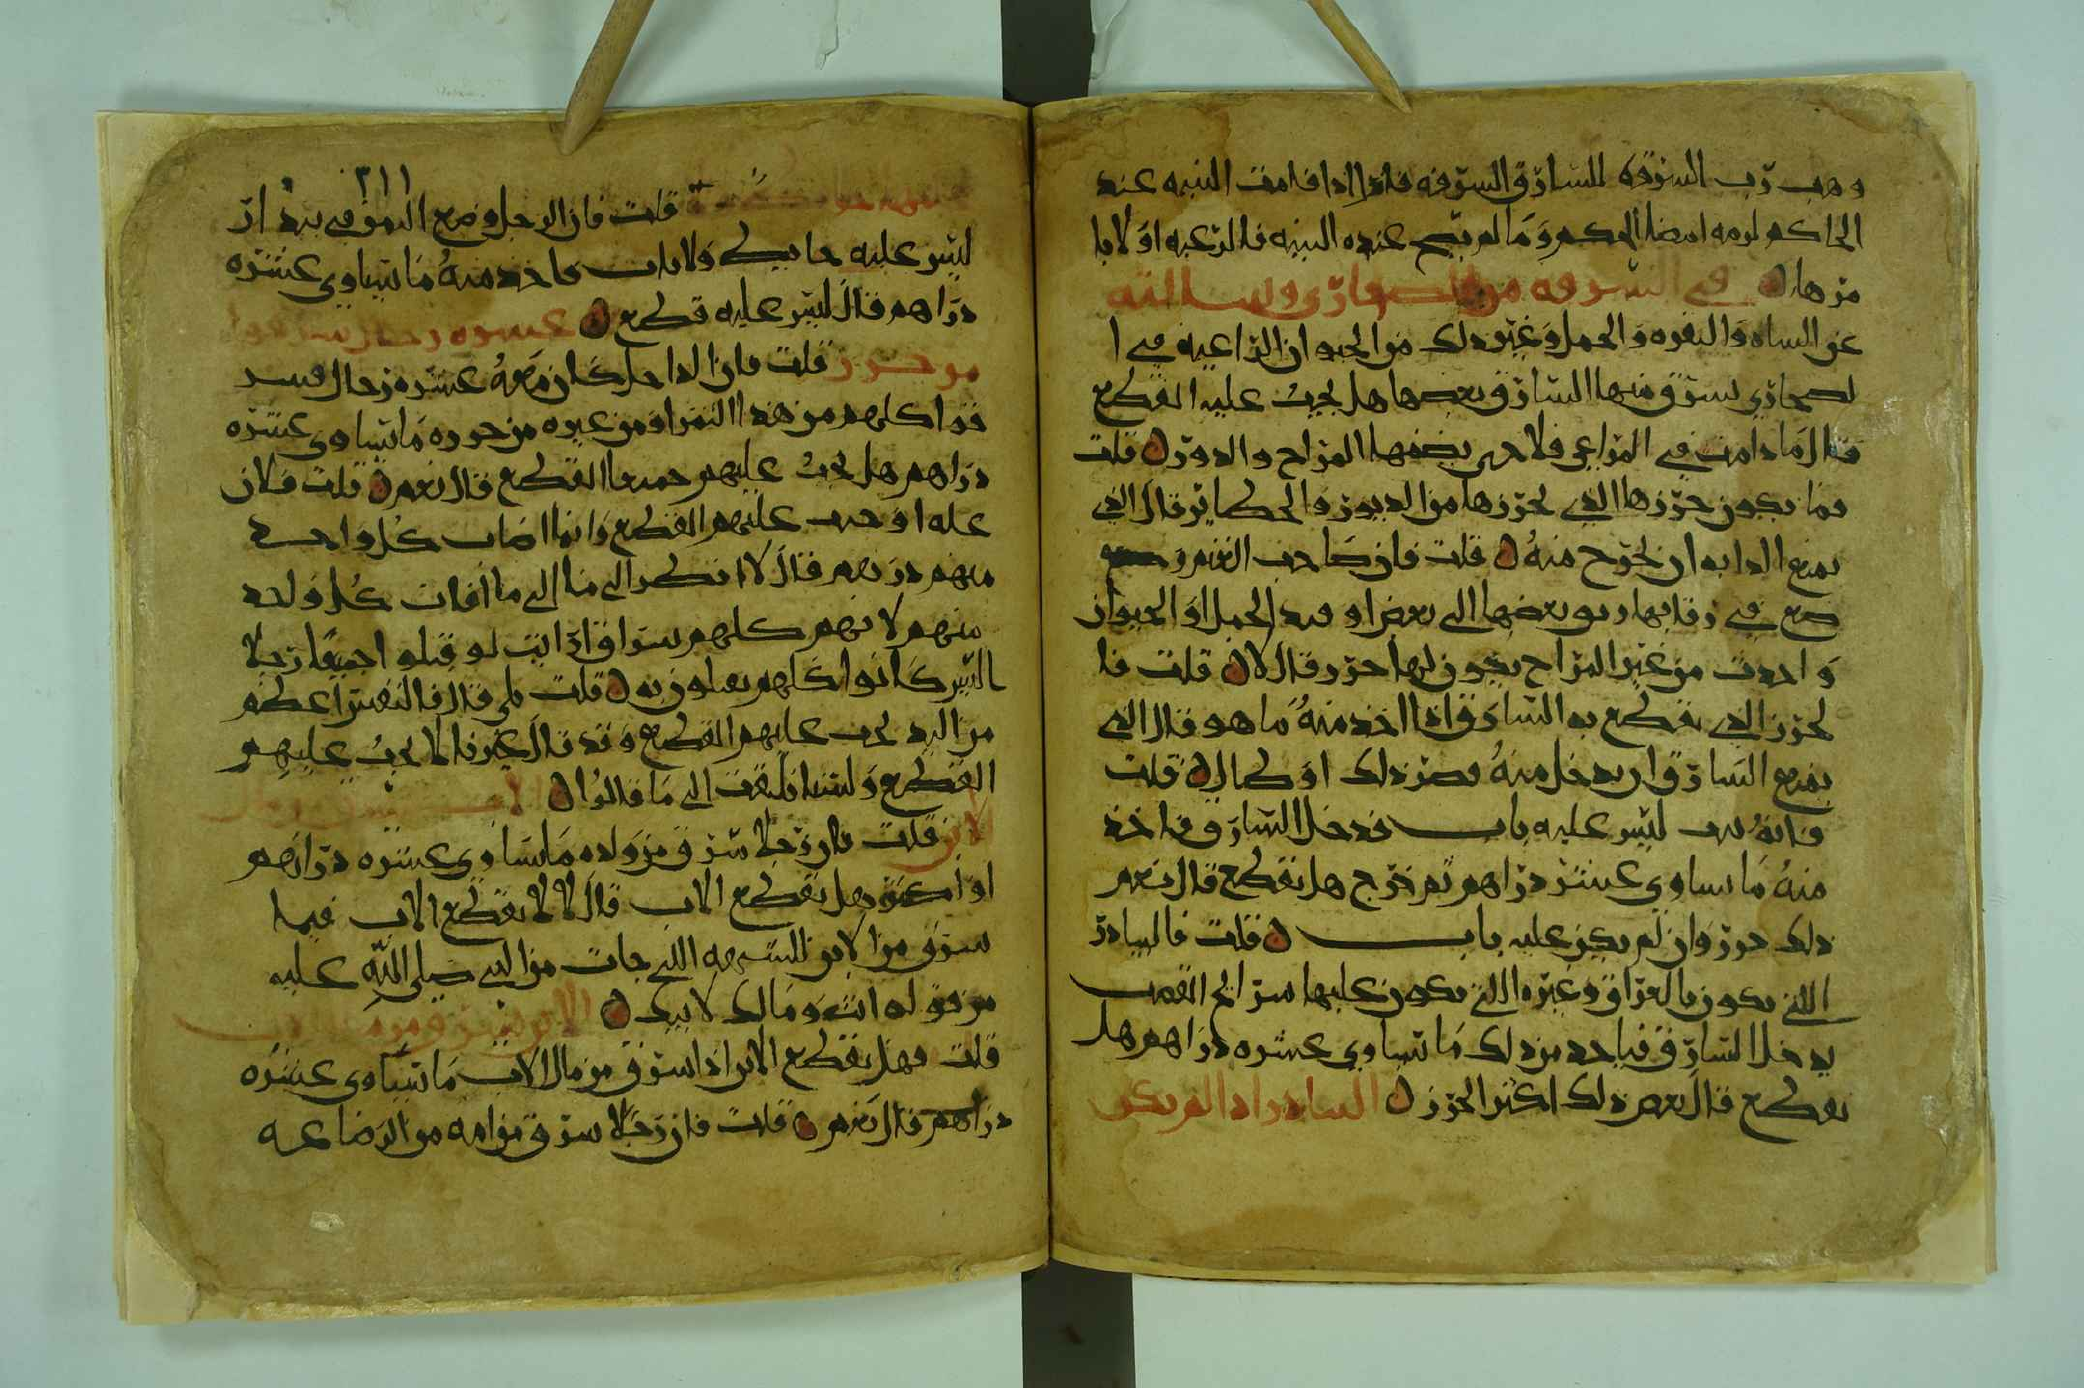 وهب رب السرقه للسارق السرقه فاذا اذا قامت البينه عند
الحاكم لزمه امضا الحكم وما لم يصح عنده البينه فالرعيه اولا با
مرها في السرقه من الصحاري وسالته
عن الشاه والبقره والجمل وغير ذلك من الحيوان الراعيه في ا
لصحاري يسرق منها السارق بعضها هل يجب عليه القطع
فقال ما دامت في المراعي فلا حتى يضمها المراح والدور قلت
فما يكون حرزها الذي يحرزها من الدور والحظاير قال الذي
يمنع الدابه ان تخرج منه قلت فان صاحب الغنم
في رقابها بعضها الى بعض او قيد الجمل او الحيوان
واخذت من غير المراح يكون لها حرز قال لا قلت فا
لحرز الذي يقطع به السارق اذا اخذ منه ما هو قال الذي
يمنع السارق ان يدخل منه قصر ذلك او طال قلت
فانه بيت ليس عليه باب فدخل السارق فاخذ
منه ما يساوي عشر دراهم ثم خرج هل يقطع قال نعم
ذلك حرز وان لم يكن عليه باب قلت فالبيادر
التي تكون بالعراق وغيره التي يكون عليها شرايج القصب
يدخل السارق فياخذ من ذلك ما يساوي عشره دراهم هل
يقطع قال نعم ذلك اكثر الحرز البيادر اذا لم يكن
٢١١
قلت فان الرجل وضع التمر في بيدر
ليس عليه حايط ولا باب فاخذ منه ما يساوي عشره
دراهم قال ليس عليه قطع عشره رجال سرقوا
من حرز قلت فان الداخل كان معه عشره رجال فسر
قوا كلهم من هذا التمر او من غيره من حرزه ما يساوي عشره
دراهم هل يجب عليهم جميعا القطع قال نعم قلت فلاي
عله اوجب عليهم القطع وانما اصاب كل واحد
منهم درهم فقال لا انظر الى هذا الى ما افات كل واحد
منهم لانهم كلهم سراق ارايت لو قتلوا جميعا رجلا
اليس كانوا كلهم يقتلون به قلت بلى قال فالنفس اعظم
من اليد يجب عليهم القطع وقد قال غيرنا لا يجب عليهم
القطع ولسنا نلتفت الى ما قالوا الاب يسرق من مال
الابن قلت فان رجلا سرق من ولده ما يساوي عشره دراهم
او اكثر هل يقطع الاب قال لا لا يقطع الاب فيما
سرق من الابن للشبهه التي جات من النبي صلى الله عليه
من قوله انت ومالك لابيك الابن يسرق من مال الاب
قلت فهل يقطع الابن اذا سرق من مال الاب ما يساوي عشره
دراهم قال نعم قلت فان رجلا سرق من امه من الرضاعه